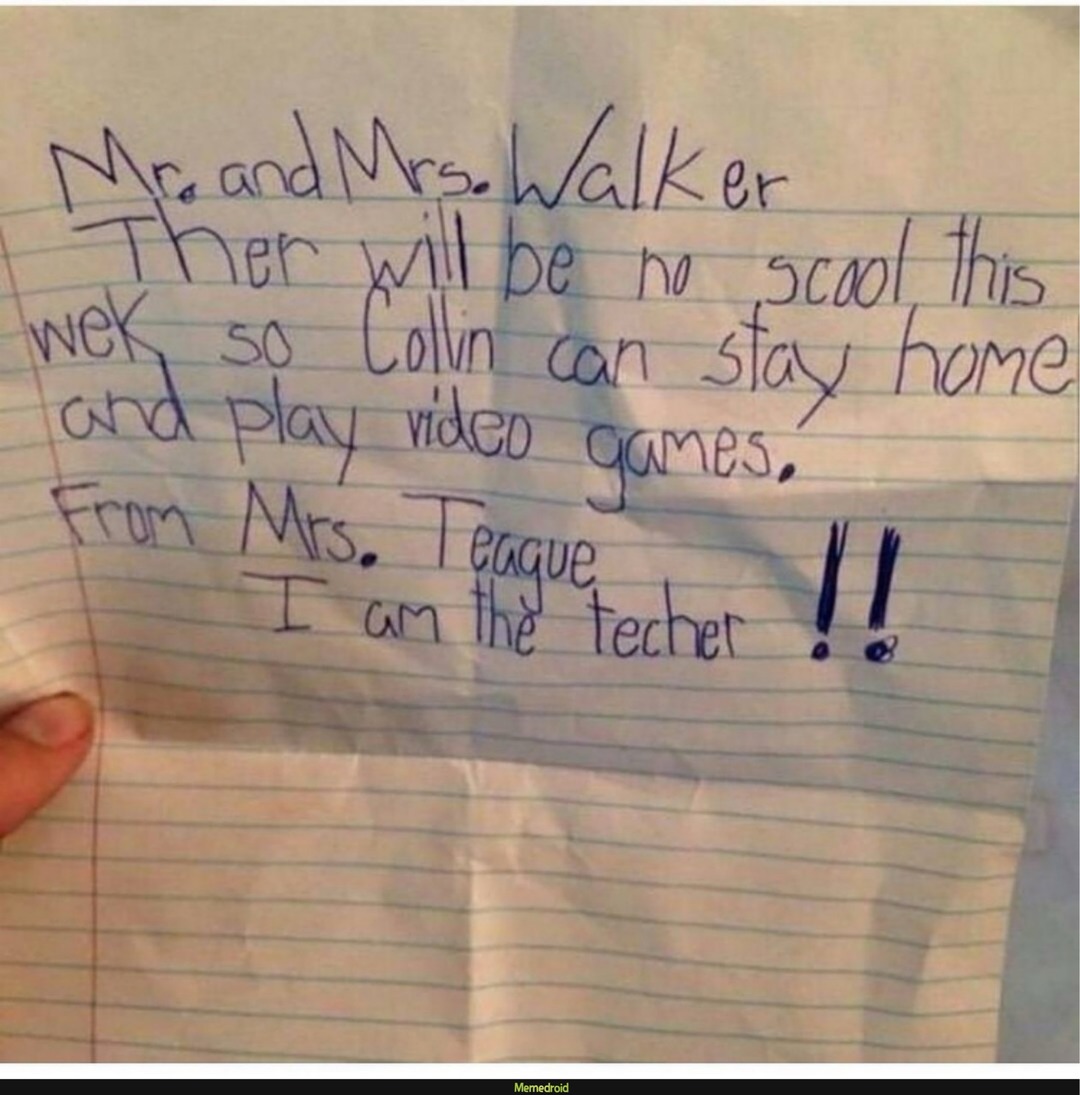 Mr. and Mrs. Walker
Ther will be no scool this
wek so Collin can stay home
and play video games.
From Mrs. Teague
I am the techer !!
Memedroid